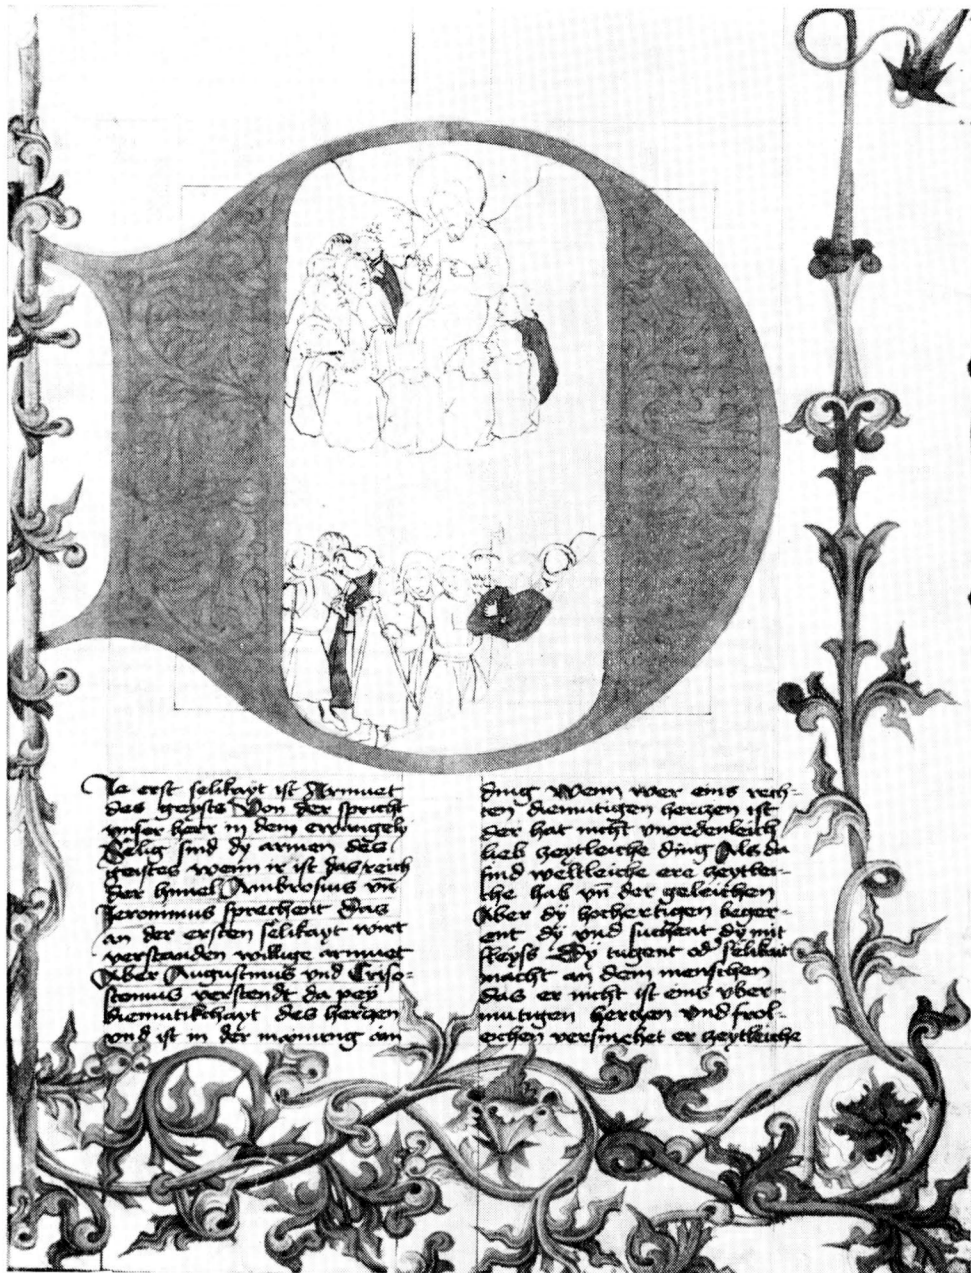 Ie erst selikayt ist Armuet
des geysts Von der spricht
vnser herr in dem ewangely
Selig sind dy armen des
geistes wenn ir ist das reich
der himel Ambrosius vñ
Jeronimus sprechent das
an der ersten selikayt wirt
verstanden willige armuet
Aber Augustinus vnd Criso-
stomus verstendt da pey
diemutikchayt des herczen
vnd ist in der maynung ain
ding Wenn wer eins rech-
ten diemutigen herczen ist
der hat nicht vnordenleich
lieb zeytleiche ding Als da
sind weltleiche ere zeytlei-
che hab vñ der geleichen
Aber dy hochertigen beger-
ent dy vnd suchent dy mit
fleyss Dy tugent od selikait
macht an dem menschen
das er nicht ist eins vber-
mutigen herczen vnd frol-
eichen versmehet er zeytleiche